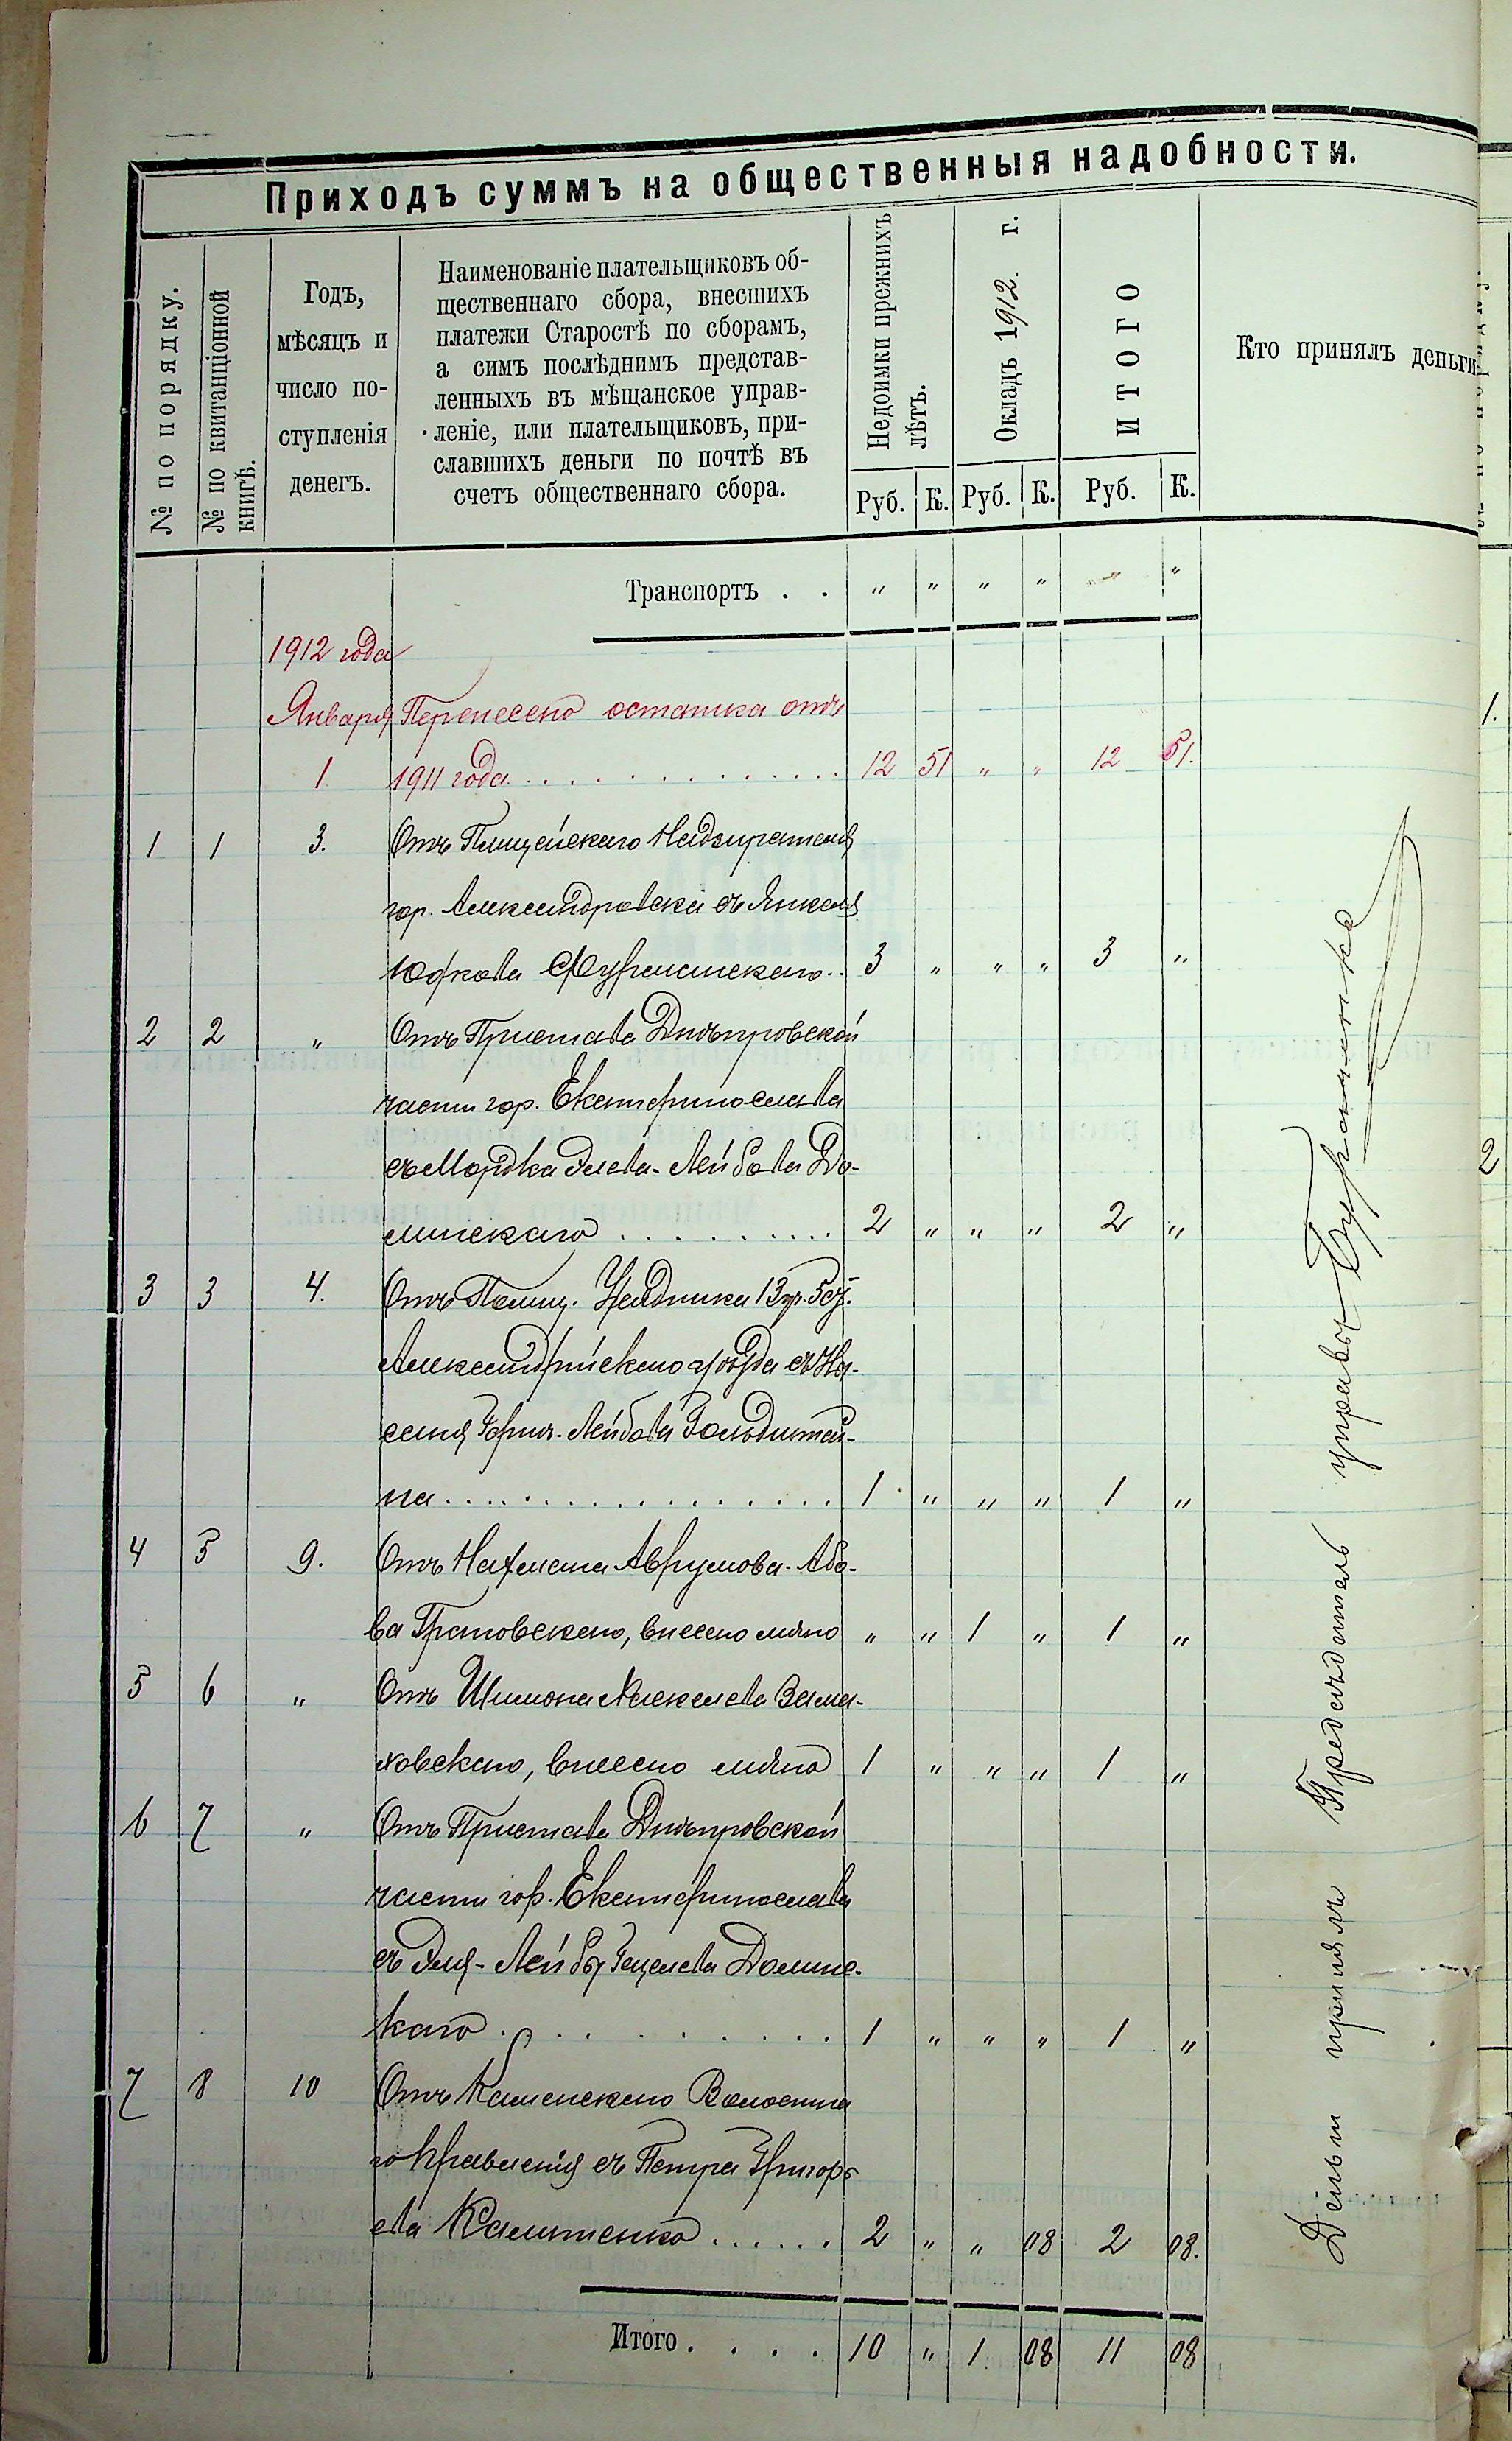 Приходъ суммъ на общественныя надобности.
№ по порядку.
№ по квитанціонной
книгѣ.
Годъ,
мѣсяцъ и
число по-
ступленія
денегъ.
Наименованіе плательщиковъ об-
щественнаго сбора, внесшихъ
платежи Старостѣ по сборамъ,
а симъ послѣднимъ представ-
ленныхъ въ мѣщанское управ-
леніе, или плательщиковъ, при-
славшихъ деньги по почтѣ въ
счетъ общественнаго сбора.
Недоимки прежнихъ
лѣтъ.
Окладъ 1912. г.
ИТОГО
Кто принялъ деньги
Руб. К. Руб. К. Руб. К.
Транспортъ . . " " " " " "
1912 года
Января Перенесено остатка отъ
1 1911 года . . . . . . . . . . . . . . 12 51 " " 12 51.
1 1 3. Отъ Полицейскаго Надзирателя
гор. Александровска съ Янкеля
Юдкова Фурманскаго . . 3 " " " 3 "
2 2 " Отъ Пристава Днѣпровской
части гор. Екатеринослава
съ Мордка Элева-Лейбова До-
линскаго . . . . . . . . . . 2 " " " 2 "
3 3 4. Отъ Полиц. Урядника 13 уч. 5 ст.
Александрійскаго уѣзда съ Ну-
сеня Герш-Лейбова Гольдштей-
на . . . . . . . . . . . . . . . . . 1 " " " 1 "
4 5 9. Отъ Нахмана Аврумова-Або-
ва Грановскаго, внесено лично " " 1 " 1 "
5 6 " Отъ Шимона Хаскелева Зама-
ховскаго, внесено лично 1 " " " 1 "
6 7 " Отъ Пристава Днѣпровской
части гор. Екатеринослава
съ Эля-Лейбы Гецелева Долинс-
каго . . . . . . . . . . . 1 " " " 1 "
7 8 10 Отъ Каменскаго Волостна
го Правленія съ Петра Григорь
ева Калитенко . . . . . . 2 " " 08 2 08.
Итого . . . . 10 " 1 08 11 08
Деньги принялъ Предсѣдатель управы
1.
2